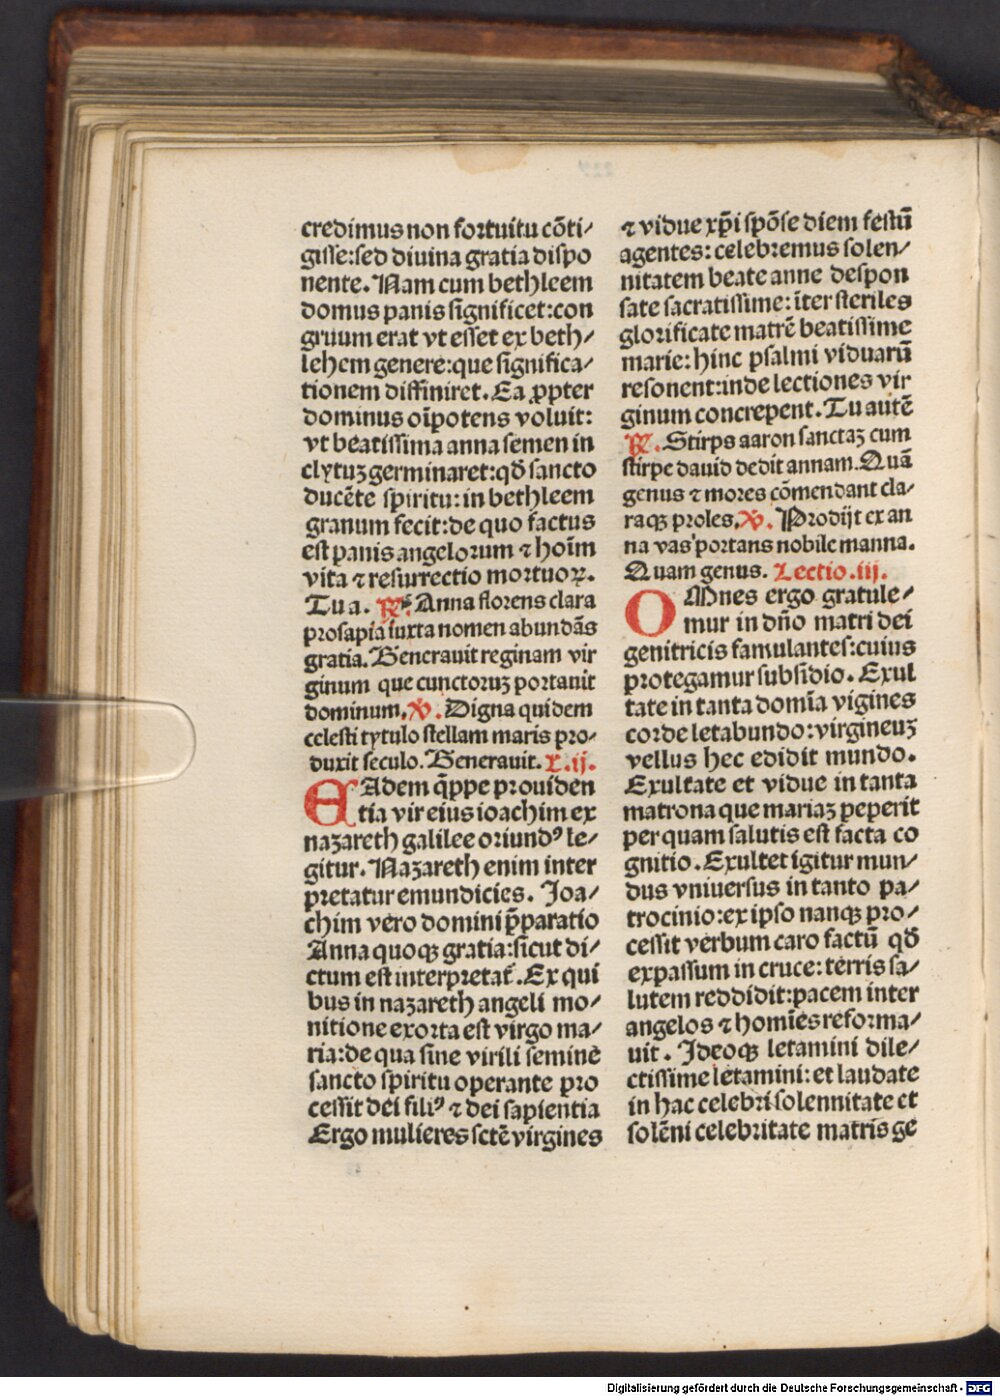 credimus non fortuitu cõti⸗
gisse:sed diuina gratia dispo
nente. Nam cum bethleem
domus panis significet:con
gruum erat vt esset ex beth⸗
lehem genere:que significa⸗
tionem diffiniret. Ea ꝓpter
dominus oĩpotens voluit:
vt beatissima anna semen in
clytuꝫ germinaret:qð sancto
ducẽte spiritu:in bethleem
granum fecit:de quo factus
est panis angelorum ⁊ hoĩm
vita ⁊ resurrectio mortuoꝝ.
Tu a. ℟. Anna florens clara
prosapia iuxta nomen abundãs
gratia. Generauit reginam vir
ginum que cunctoruꝫ portauit
dominum. ℣. Digna quidem
celesti tytulo stellam maris pro⸗
duxit seculo. Generauit. L.ij.
EAdem q̃ppe prouiden
tia vir eius ioachim ex
nazareth galilee oriundꝰ le⸗
gitur. Nazareth enim inter
pretatur emundicies. Joa⸗
chim vero domini p̃paratio
Anna quoqꝫ gratia:sicut di⸗
ctum est interpretat᷑. Ex qui
bus in nazareth angeli mo⸗
nitione exorta est virgo ma⸗
ria:de qua sine virili semine
sancto spiritu operante pro
cessit dei filiꝰ ⁊ dei sapientia
Ergo mulieres sctẽ virgines
⁊ vidue xp̃i spõse diem festũ
agentes:celebremus solen⸗
nitatem beate anne despon
sate sacratissime:ĩter steriles
glorificate matrẽ beatissime
marie:hinc psalmi viduarũ
resonent:inde lectiones vir
ginum concrepent. Tu autẽ
℟. Stirps aaron sanctaꝫ cum
stirpe dauid dedit annam. Quã
genus ⁊ mores cõmendant cla⸗
raqꝫ proles. ℣. Prodijt ex an
na vas portans nobile manna.
Quam genus. Lectio.iij.
OMnes ergo gratule⸗
mur in dño matri dei
genitricis famulantes:cuius
protegamur subsidio. Exul
tate in tanta domĩa vigines
corde letabundo:virgineuꝫ
vellus hec edidit mundo.
Exultate et vidue in tanta
matrona que mariaꝫ peperit
per quam salutis est facta co
gnitio. Exultet igitur mun⸗
dus vniuersus in tanto pa⸗
trocinio:ex ipso nanqꝫ pro⸗
cessit verbum caro factũ qð
expassum in cruce:terris sa⸗
lutem reddidit:pacem inter
angelos ⁊ homĩes reforma⸗
uit. Ideoqꝫ letamini dile⸗
ctissime letamini:et laudate
in hac celebri solennitate et
solẽni celebritate matris ge
Digitalisierung gefördert durch die Deutsche Forschungsgemeinschaft - DFG